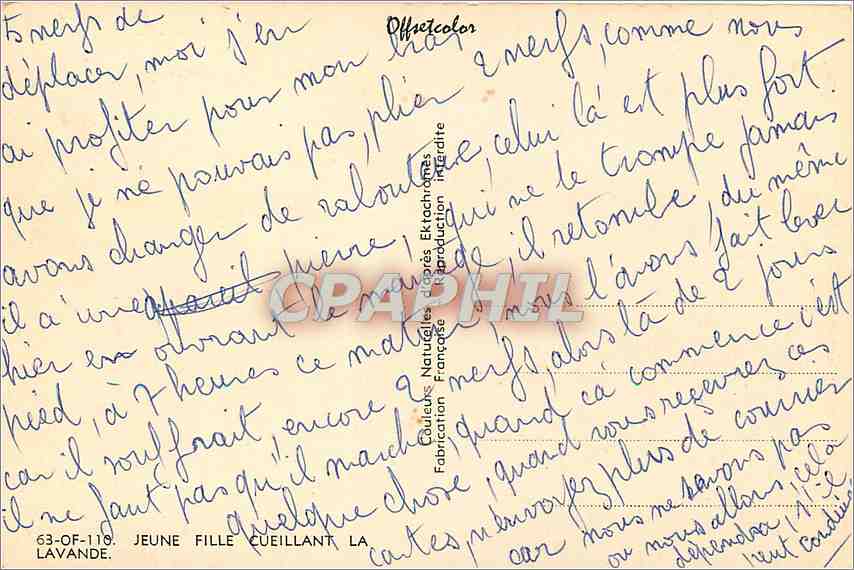 Offsetcolor
5 nerfs de
déplacer, moi j'en
ai profiter pour mon bras
que je ne pouvais pas, plier 2 nerfs, comme nous
avons changer de rabouteur, celui là est plus fort
il a une pierre, qui ne le trompe jamais
hier en ouvrant le manège, il retombe, du même
pied, à 7 heures ce matin, nous l'avons fait lever
car il souffrait, encore 2 nerfs, alors là de 2 jours
il ne faut pas qu'il marche, quand ça commence c'est
quelque chose, quand vous recevrez ces
cartes, n'envoyez plus de courrier
car nous ne savons pas
où nous allons, cela
dépendra, s'il
veut
Couleurs Naturelles d'après Ektachromes
Fabrication Française Reproduction interdite
CPAPHIL
63-OF-110. JEUNE FILLE CUEILLANT LA
LAVANDE.